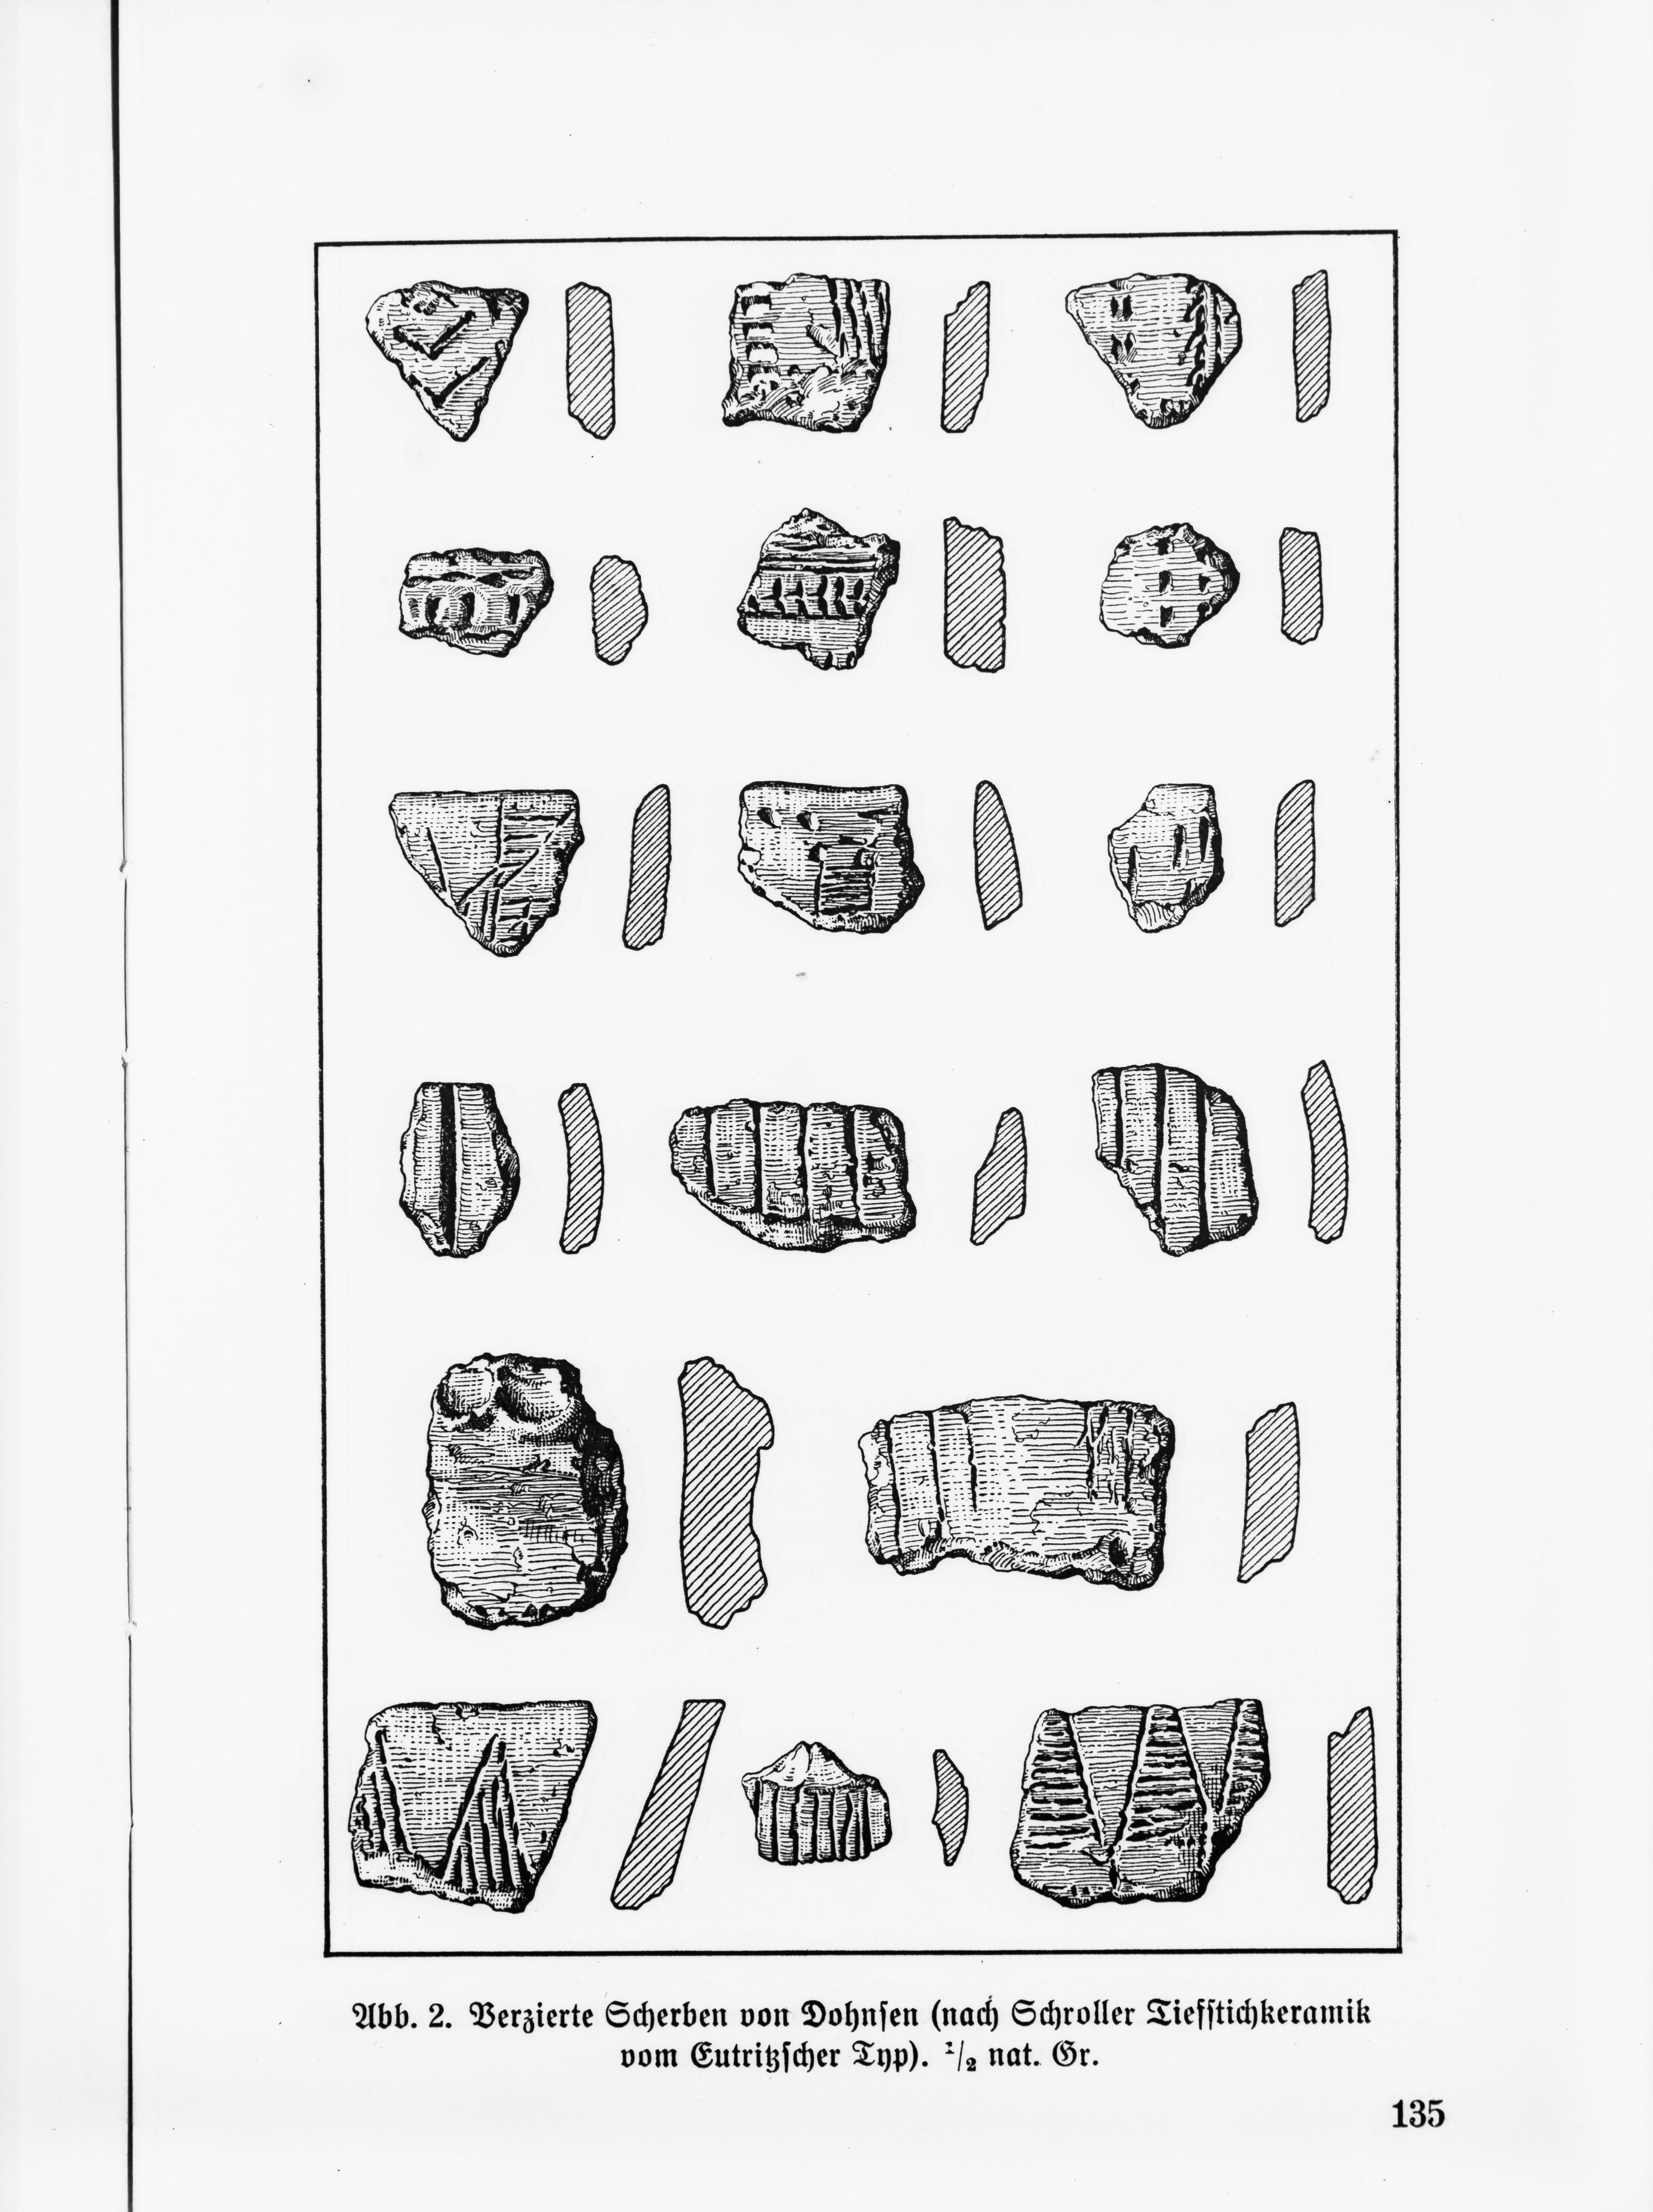 Abb. 2. Verzierte Scherben von Dohnsen (nach Schroller Tiefstichkeramik
vom Eutritzscher Typ). 1/2 nat. Gr.
135